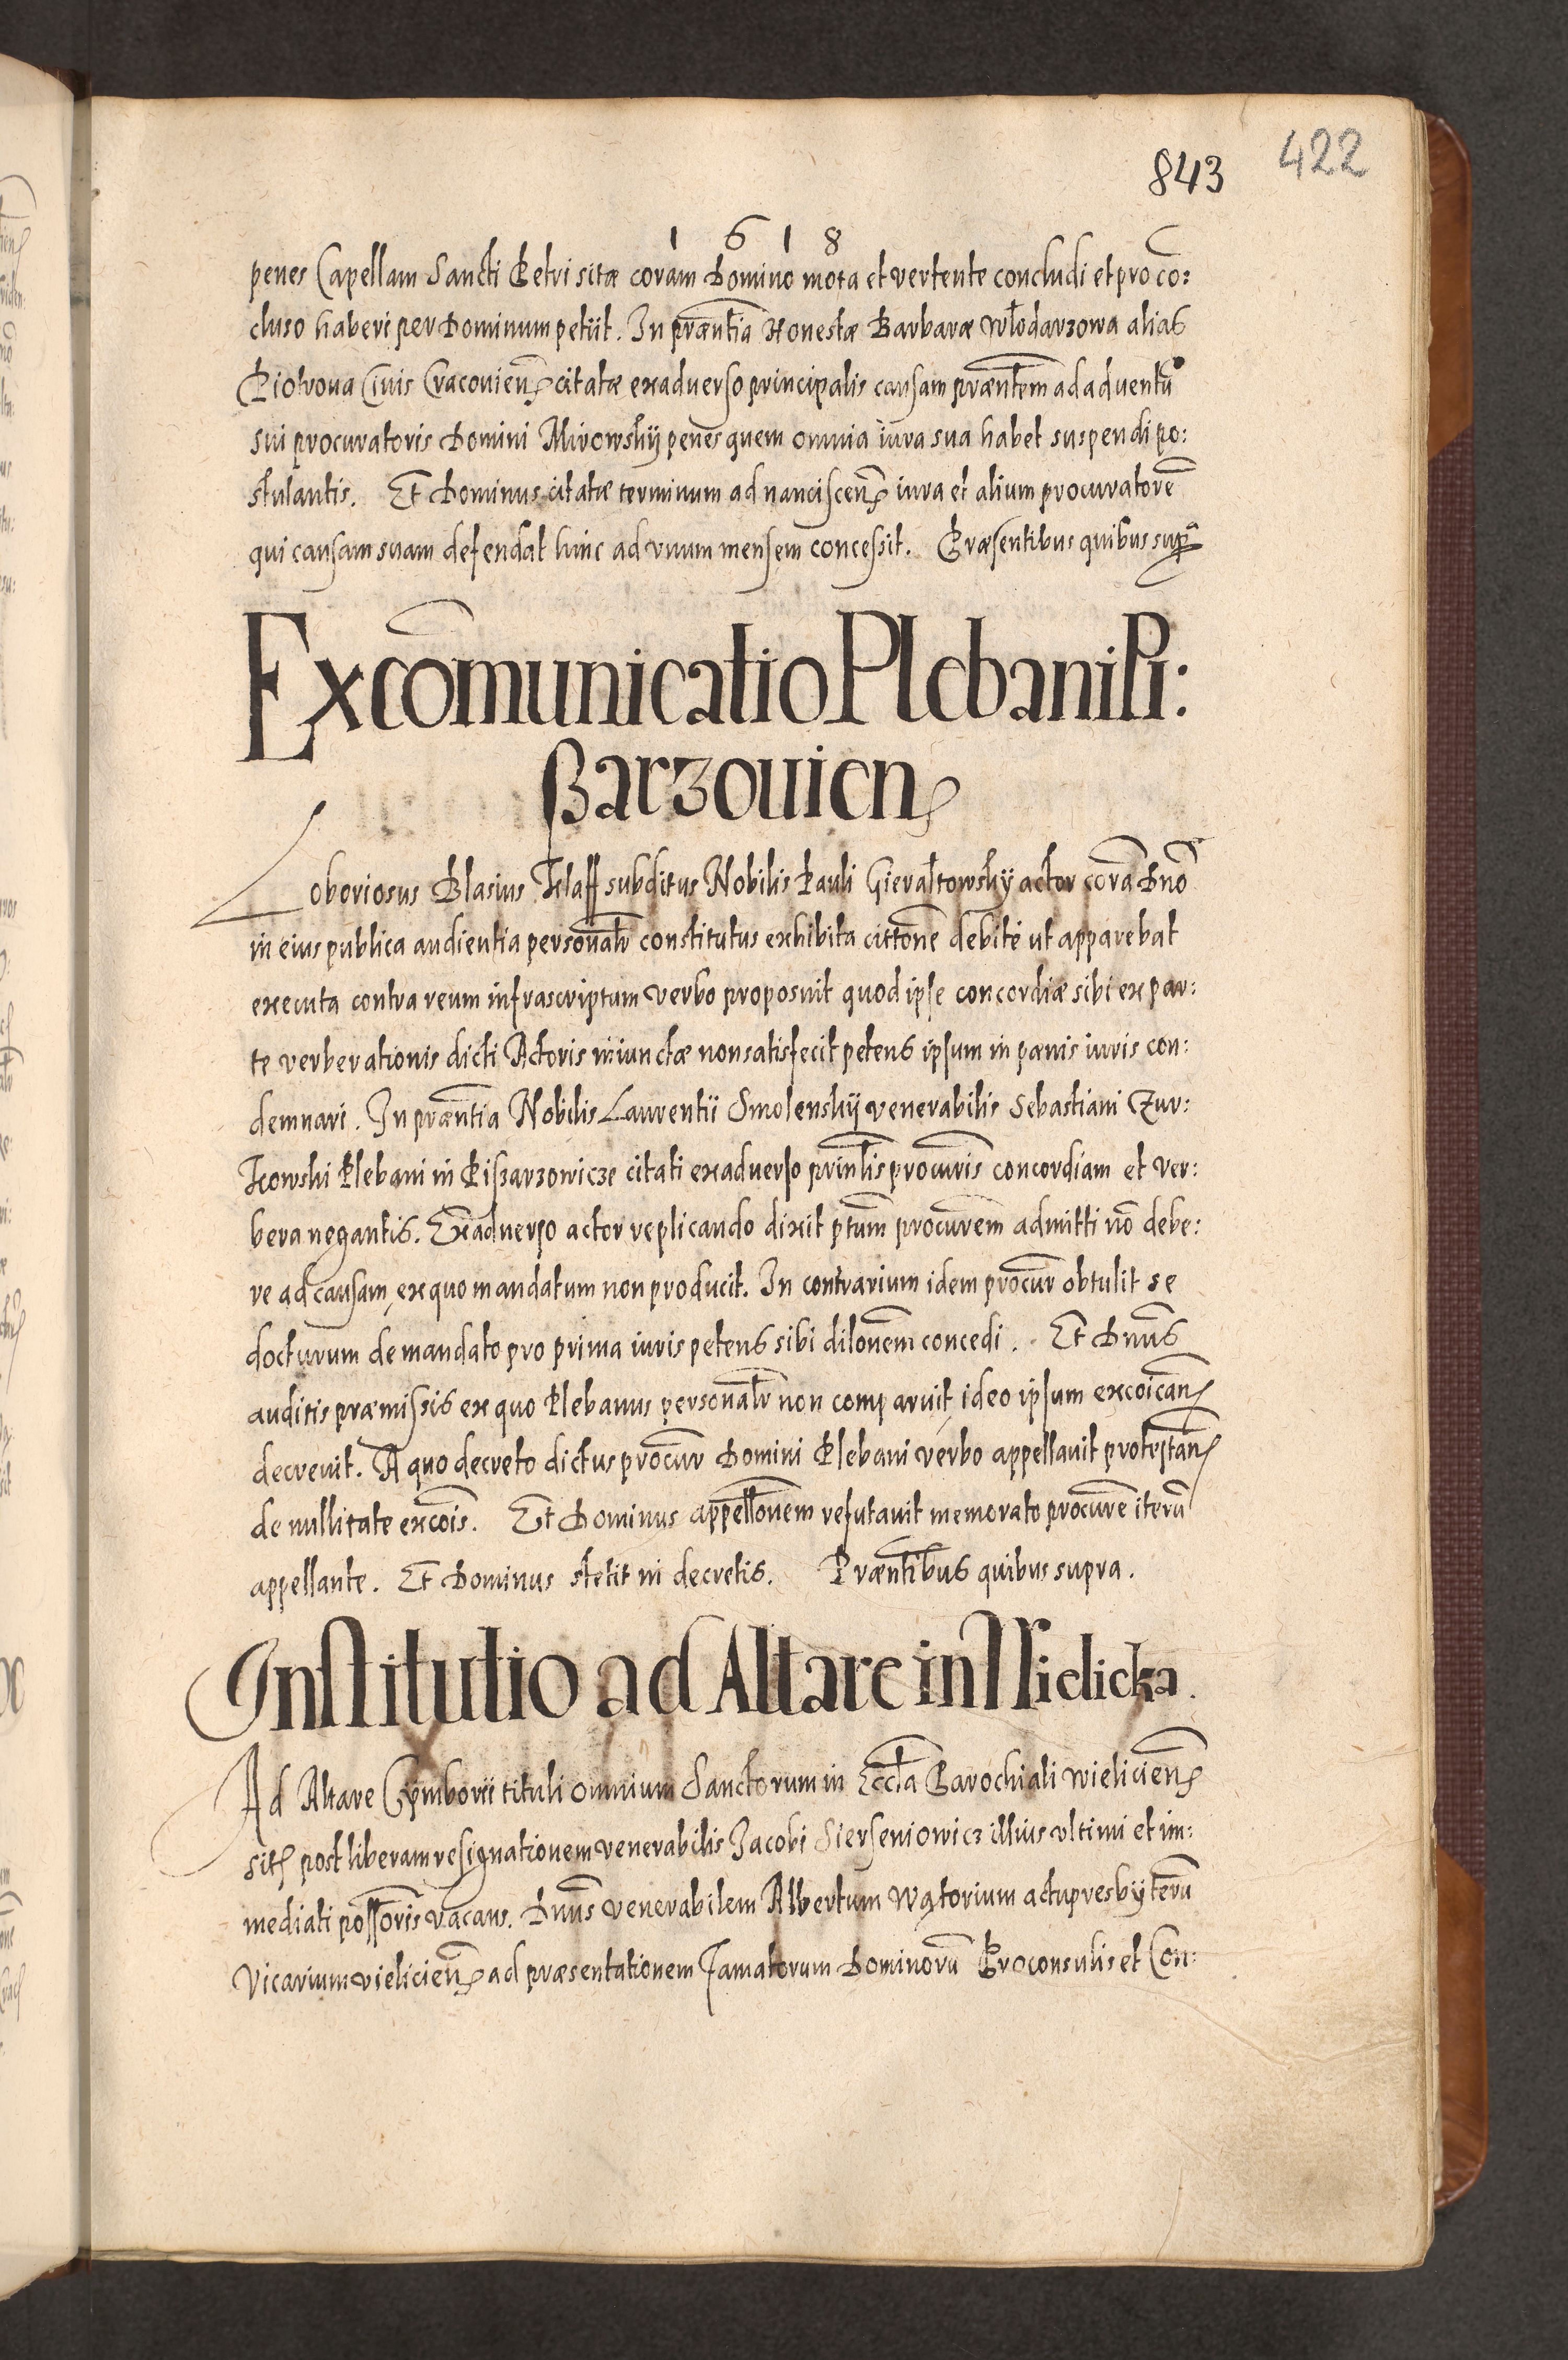 422
843
1618
penes Capellam Sancti Petri sitæ coram Domino mota et vertente concludi et pro cō:
cluso haberi per Dominum petiit. In præntia Honestæ Barbaræ Włodarzowa alias
Piotrova Civis Cracovien̄ citatæ ex adverso principalis causam præntem ad adventū
sui procuratoris Domini Mirowskÿ penes quem omnia iura sua habet suspendi po:
stulantis. Et Dominus citatæ terminum ad nanciscen̄ iura et alium procuratorē
qui causam suam defendat hinc ad vnum mensem concessit. Præsentibus quibus supr̄
Excōmunicatio Plebani Pi:
ßarzouien̄
Loboriosus Blasius Klaff subditus Nobilis Pauli Gierałtowskÿ actor corā Dnō
in eius publica audientia personalr̄ constitutus exhibita cittōne debite ut apparebat
executa contra reum infrascriptum verbo proposuit quod ipse concordiæ sibi ex par:
te verberationis dicti Actoris iniunctæ non satisfecit petens ipsum in pænis iuris con:
demnari. In præntia Nobilis Laurentii Smolenskÿ venerabilis Sebastiani Zur:
kowski Plebani in Pißarzowicze citati ex adverso prinlis procuris concordiam et ver:
bera negantis. Ex adverso actor replicando dixit ptum procurem admitti nō debe:
re ad causam, ex quo mandatum non producit. In contrarium idem procur obtulit se
docturum de mandato pro prima iuris petens sibi dilonem concedi. Et Dnus
auditis præmissis ex quo Plebanus personalr̄ non comparuit ideo ipsum excoican̄
decrevit. A quo decreto dictus procur Domini Plebani verbo appellavit protestan̄
de nullitate excois. Et Dominus appellonem refutavit memorato procure iterū
appellante. Et Dominus stetit in decretis. Præntibus quibus supra.
Institutio ad Altare in Wielicka.
Ad Altare Cÿmborii tituli omnium Sanctorum in Eccla Parochiali Wielicien̄
sit̄ post liberam resignationem venerabilis Jacobi Sierseniowicz illius vltimi et im:
mediati possoris vacans. Dnus venerabilem Albertum Wątorium actu presbÿterū
Vicarium vielicien̄ ad præsentationem Famatorum Dominorū Proconsulis et Con: